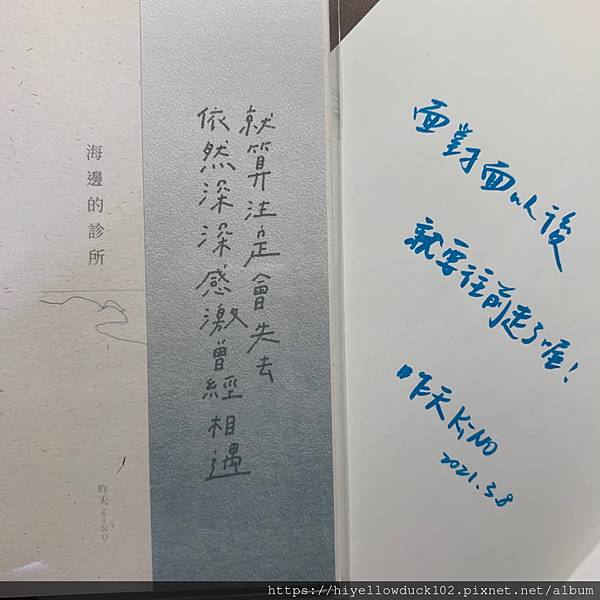 海邊的診所
昨天 KiNO
就算注定會失去
依然深深感激曾經相遇
面對面以後
就要往前走了喔!
昨天 KiNO
2021.3.8
https://hiyellowduck102.pixnet.net/album